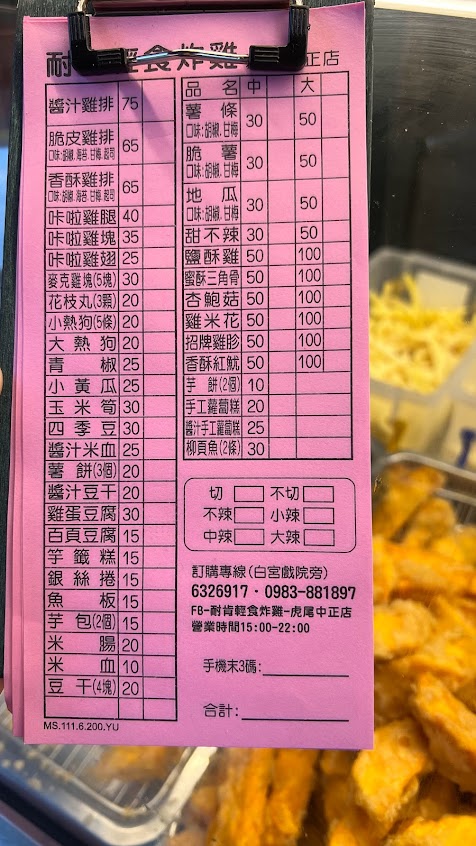 耐 輕食炸雞 中正店
醬汁雞排 75
脆皮雞排 65
口味:胡椒.海苔.甘梅.起司
香酥雞排 65
口味:胡椒.海苔.甘梅.起司
咔啦雞腿 40
咔啦雞塊 35
咔啦雞翅 25
麥克雞塊(5塊) 30
花枝丸(3顆) 20
小熱狗(5條) 20
大熱狗 20
青椒 25
小黃瓜 25
玉米筍 30
四季豆 30
醬汁米血 25
薯餅(3個) 20
醬汁豆干 20
雞蛋豆腐 30
百頁豆腐 15
芋籤糕 15
銀絲捲 15
魚板 15
芋包(2個) 15
米腸 20
米血 10
豆干(4塊) 20
MS.111.6.200.YU
品名 中 大
薯條 30 50
口味:胡椒.甘梅
脆薯 30 50
口味:胡椒.甘梅
地瓜 30 50
口味:胡椒.甘梅
甜不辣 30 50
鹽酥雞 50 100
蜜酥三角骨 50 100
杏鮑菇 50 100
雞米花 50 100
招牌雞胗 50 100
香酥紅魷 50 100
芋餅(2個) 10
手工蘿蔔糕 20
醬汁手工蘿蔔糕 25
柳頁魚(2條) 30
切 不切
不辣 小辣
中辣 大辣
訂購專線(白宮戲院旁)
6326917·0983-881897
FB-耐肯輕食炸雞-虎尾中正店
營業時間15:00-22:00
手機末3碼:
合計: